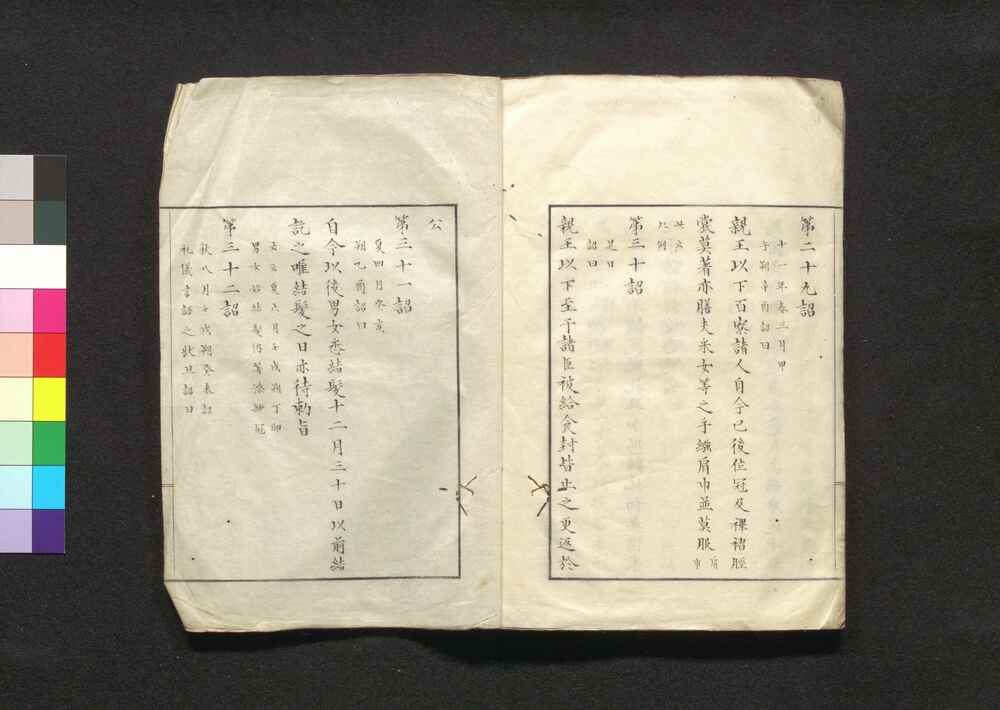 第二十九詔
十一年春三月甲
午朔辛酉詔曰
親王以下百寮諸人自今已後位冠及襅褶脛
裳莫著亦膳夫采女等之手繦肩巾並莫服肩
巾
此云
比例
第三十詔
是日
詔曰
親王以下至于諸臣被給食封皆止之更返於
公
第三十一詔
夏四月癸亥
朔乙酉詔曰
自今以後男女悉結髮十二月三十日以前結
訖之唯結髮之日亦待勅旨
云云夏六月壬戌朔丁卯
男女始結髮仍著漆紗冠
第三十二詔
秋八月壬戌朔癸未詔
礼儀言語之狀且詔曰